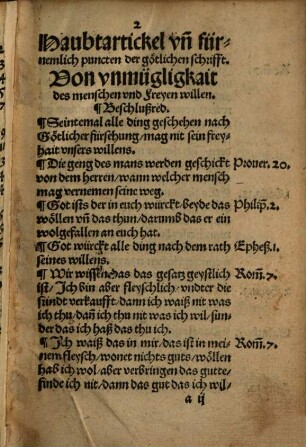 2
Haubtartickel vñ für-
nemlich puncten der götlichen schrifft.
Von vnmügligkait
des menschen vnd Freyen willen.
¶ Beschlußred.
¶ Seintemal alle ding geschehen nach
Götlicher fürsehung / mag nit sein frey-
hait vnsers willens.
¶ Die geng des mans werden geschickt Prouer. 20.
von dem herren / wann welcher mensch
mag vernemen seine weg.
¶ Got ists der in euch würckt / beyde das Philip̃. 2.
wöllen vñ das thun / darumb das er ein
wolgefallen an euch hat.
¶ Got würckt alle ding nach dem rath Ephes̃. 1.
seines willens.
¶ Wir wissen das das gesatz geystlich Rom̃. 7.
ist / Ich bin aber fleyschlich / vndter die
sündt verkaufft / dann ich waiß nit was
ich thu / dañ ich thu nit was ich wil / sun-
der das ich haß das thu ich.
¶ Ich waiß das in mir / das ist in mei- Rom̃. 7.
nem fleysch / wonet nichts guts / wöllen
hab ich wol / aber verbringen das gutte /
finde ich nit / dann das gut das ich wil-
a ij